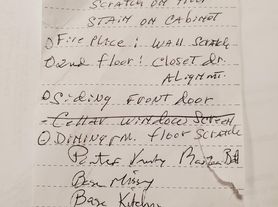 SCRATCH ON FLOOR
STAIN ON CABINET
O Fire Place: WALL Scratch
O 2nd Floor! Closet dr.
ALignment.
O Siding FRONT door
Cellar WINDOW Screen
O DINING RM. floor Scratch
Vanity Bath
Base Missing
Base Kitchen